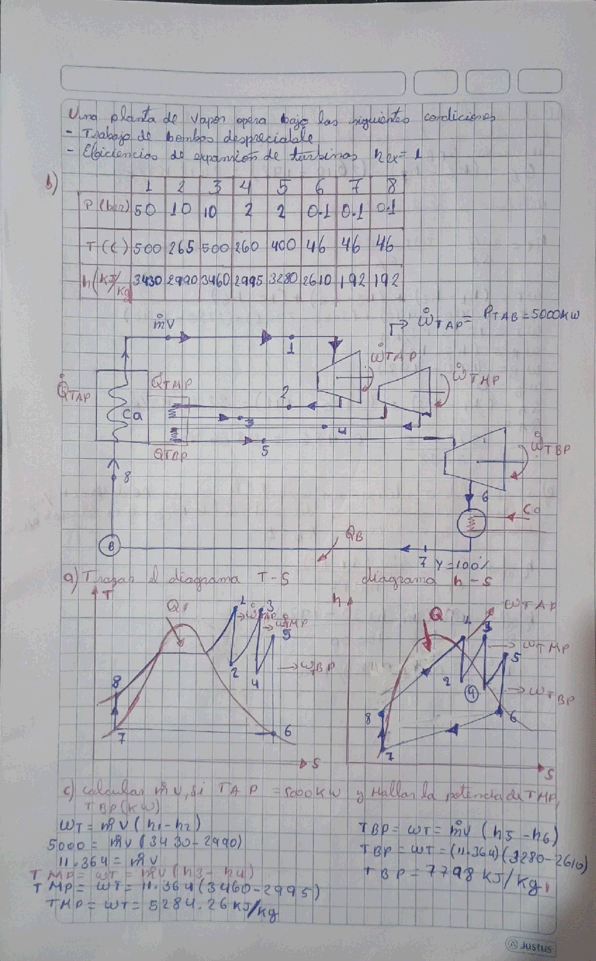 Una planta de vapor opera bajo las siguientes condiciones
- Trabajo de bombas despreciable
- Eficiencias de expansión de turbinas nex = 1
b)
1 2 3 4 5 6 7 8
P (bar) 50 10 10 2 2 0.1 0.1 0.1
T (C) 500 265 500 260 400 46 46 46
h (KJ/Kg) 3430 2990 3460 2995 3280 2610 192 192
ṁV
ẆTAP = PTAB = 5000KW
1
ẆTAP
Q̇TAP
QTMP
2
ẆTMP
Ca
3
4
QTAP
5
ẆTBP
8
6
Co
B
QB
7 Y=100%
a) Trazar el diagrama T-S
diagrama h-s
T
Q1
1
3
WTAP
WTMP
5
2
4
WBP
8
7
6
S
h
Q
1
WTAP
3
WTMP
5
2
4
WTBP
8
6
7
S
c) calcular ṁV, si TAP = 5000KW y Hallar la potencia de TMP,
TBP (KW)
WT = ṁV (h1-h2)
5000 = ṁV (3430-2990)
11.364 = ṁV
TMP = WT = ṁV (h3-h4)
TMP = WT = 11.364 (3460-2995)
TMP = WT = 5284.26 KJ/Kg
TBP = WT = ṁV (h5-h6)
TBP = WT = (11.364)(3280-2610)
TBP = 7798 KJ/Kg
Justus